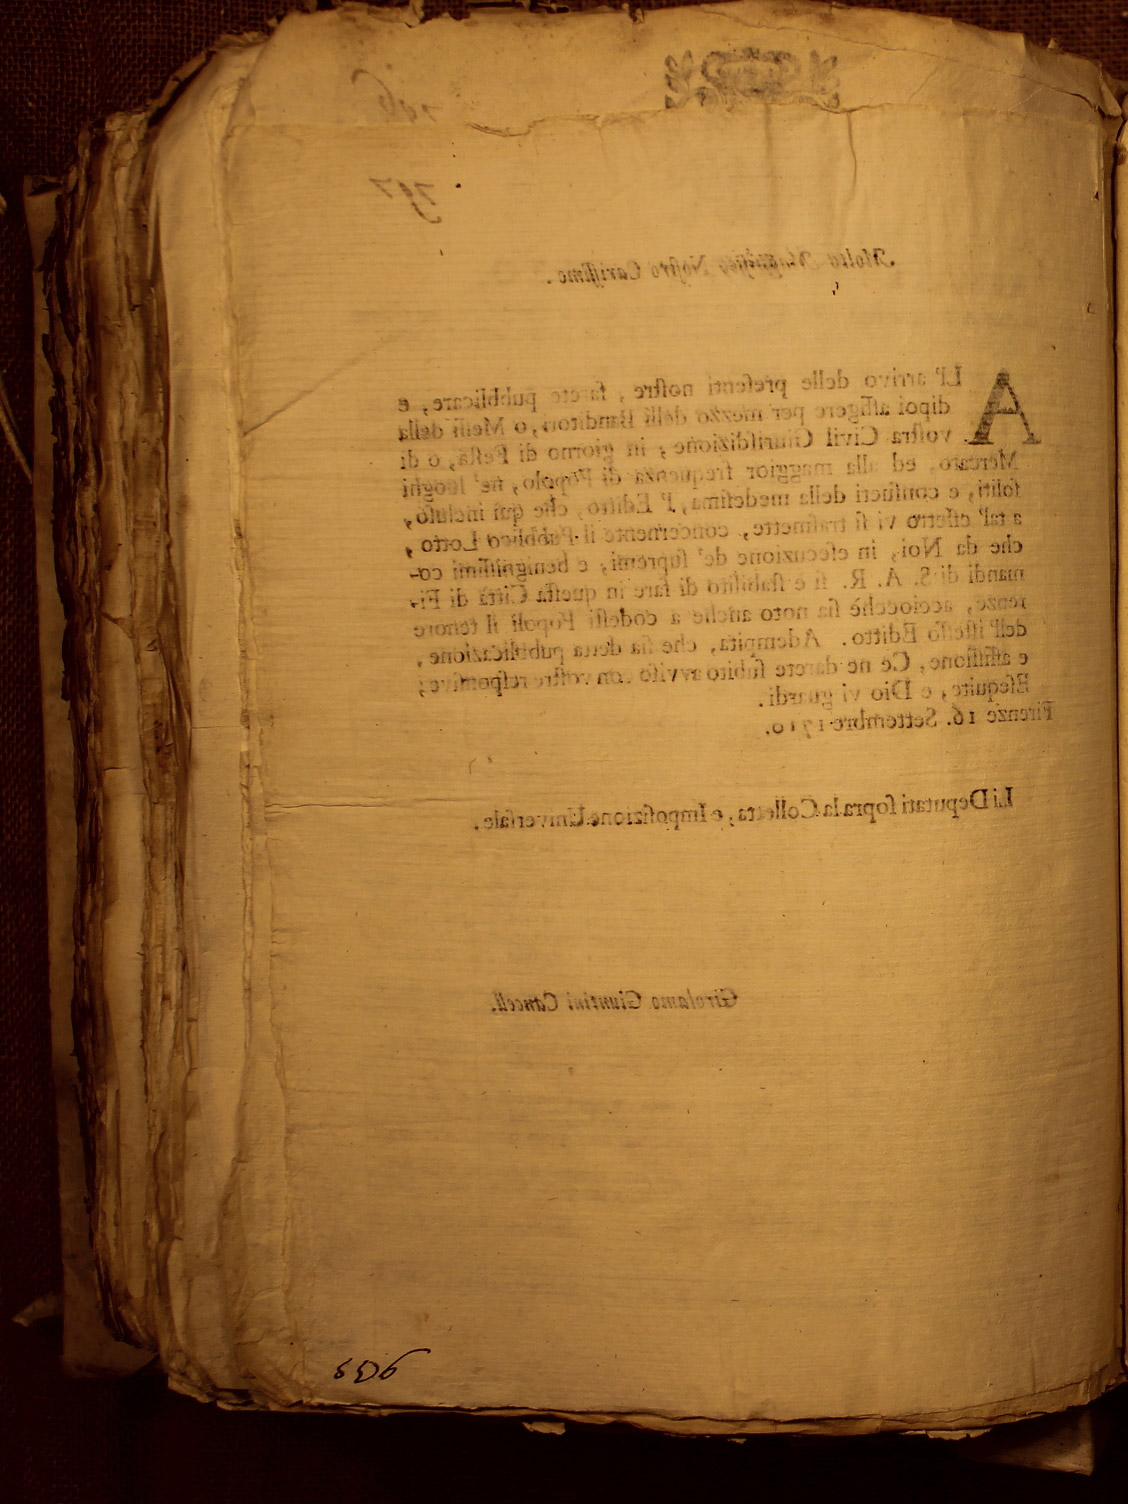 797
Molto Magnifico Nostro Carissimo.
ALl' arrivo delle presenti nostre, farete pubblicare, e
dipoi affigere per mezzo delli Banditori, o Messi della
vostra Civil Giurisdizione, in giorno di Festa, o di
Mercato, ed alla maggior frequenza di Popolo, ne' luoghi
soliti, e consueti della medesima, l' Editto, che qui incluso,
a tal' effetto vi si trasmette, concernente il Pubblico Lotto,
che da Noi, in esecuzione de' supremi, e benignissimi co-
mandi di S. A. R. si è stabilito di fare in questa Città di Fi-
renze, acciocchè sia noto anche a codesti Popoli il tenore
dell' istesso Editto. Adempita, che sia detta pubblicazione,
e affissione, Ce ne darete subito avviso con vostre responsive;
Esequite, e Dio vi guardi.
Firenze 16. Settembre 1710.
Li Deputati sopra la Colletta, e Imposizione Universale.
Girolamo Giuntini Cancell.